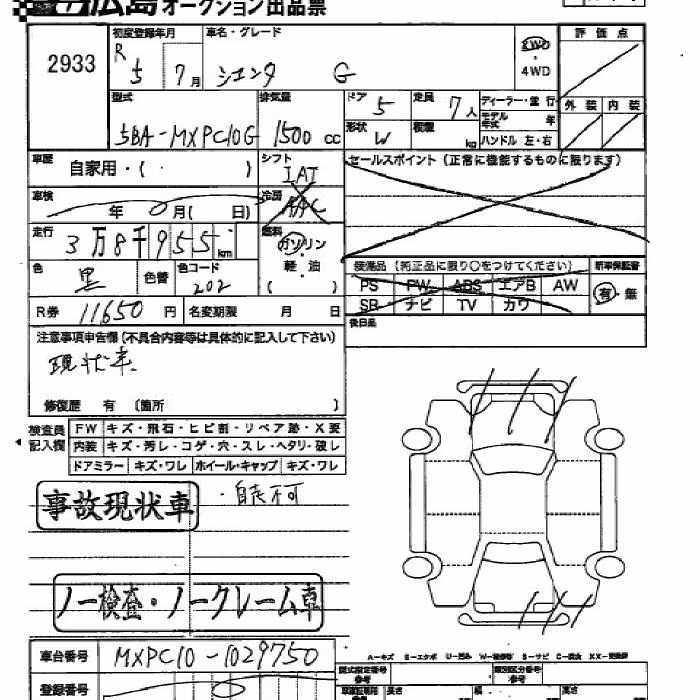 広島オークション出品票
2933
初度登録年月 車名・グレード 評価点
R5 7月 シエンタ G 2WD・4WD
型式 排気量 ドア 5 定員 7人 ディーラー・並行 外装 内装
5BA-MXPC10G 1500cc 形状 W 積載 kg モデル年式 年
ハンドル 左・右
車歴 自家用・( ) シフト IAT セールスポイント(正常に機能するものに限ります)
車検 年 月( 日) 冷房 AAC
走行 3万8千955km 燃料 ガソリン・軽油 ( )
色 黒 色替 色コード 202
装備品(純正品に限り○をつけてください) 新車保証書
PS PW ABS エアB AW 有・無
SR ナビ TV カワ
R券 11650円 名変期限 月 日
後日品
注意事項申告欄(不具合内容等は具体的に記入して下さい)
現状車
修復歴 有 〔箇所 〕
検査員記入欄
FW キズ・飛石・ヒビ割・リペア跡・X要
内装 キズ・汚レ・コゲ・穴・スレ・ヘタリ・破レ
ドアミラー キズ・ワレ ホイール・キャップ キズ・ワレ
事故現状車 ・自走不可
ノー検査・ノークレーム車
車台番号 MXPC10-1029750
登録番号
A-キズ E-エクボ U-凹み
型式指定番号 参考 類別区分番号 参考
長さ 幅 高さ